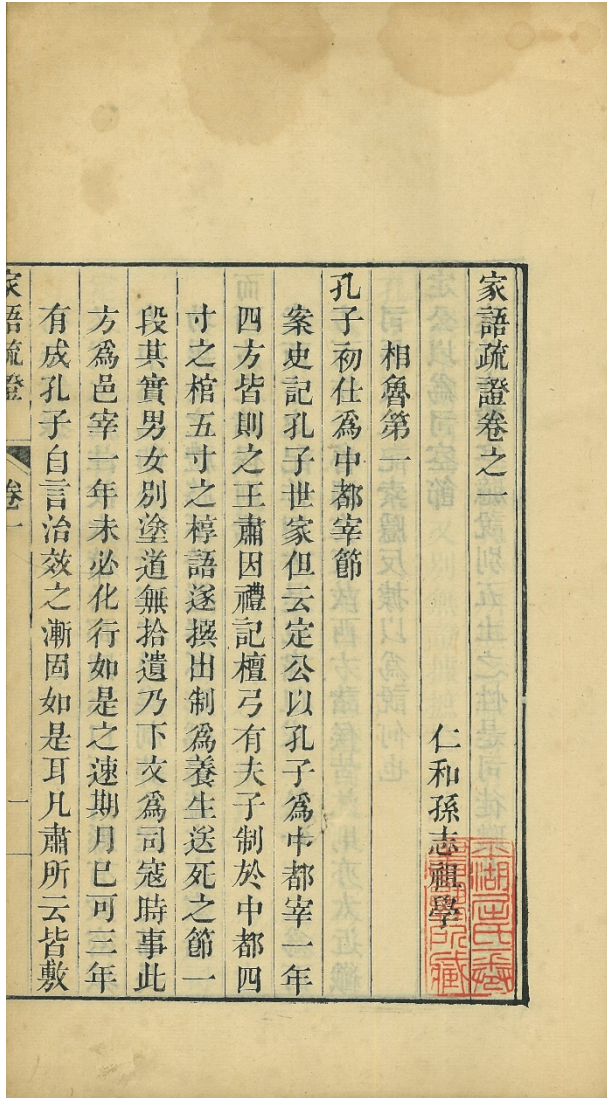 家語疏證卷之一
仁和孫志祖學
相魯第一
孔子初仕爲中都宰節
案史記孔子世家但云定公以孔子爲中都宰一年
四方皆則之王肅因禮記檀弓有夫子制於中都四
寸之棺五寸之椁語遂撰出制爲養生送死之節一
段其實男女別塗道無拾遺乃下文爲司寇時事此
方爲邑宰一年未必化行如是之速期月已可三年
有成孔子自言治效之漸固如是耳凡肅所云皆敷
家語疏證
卷一
一